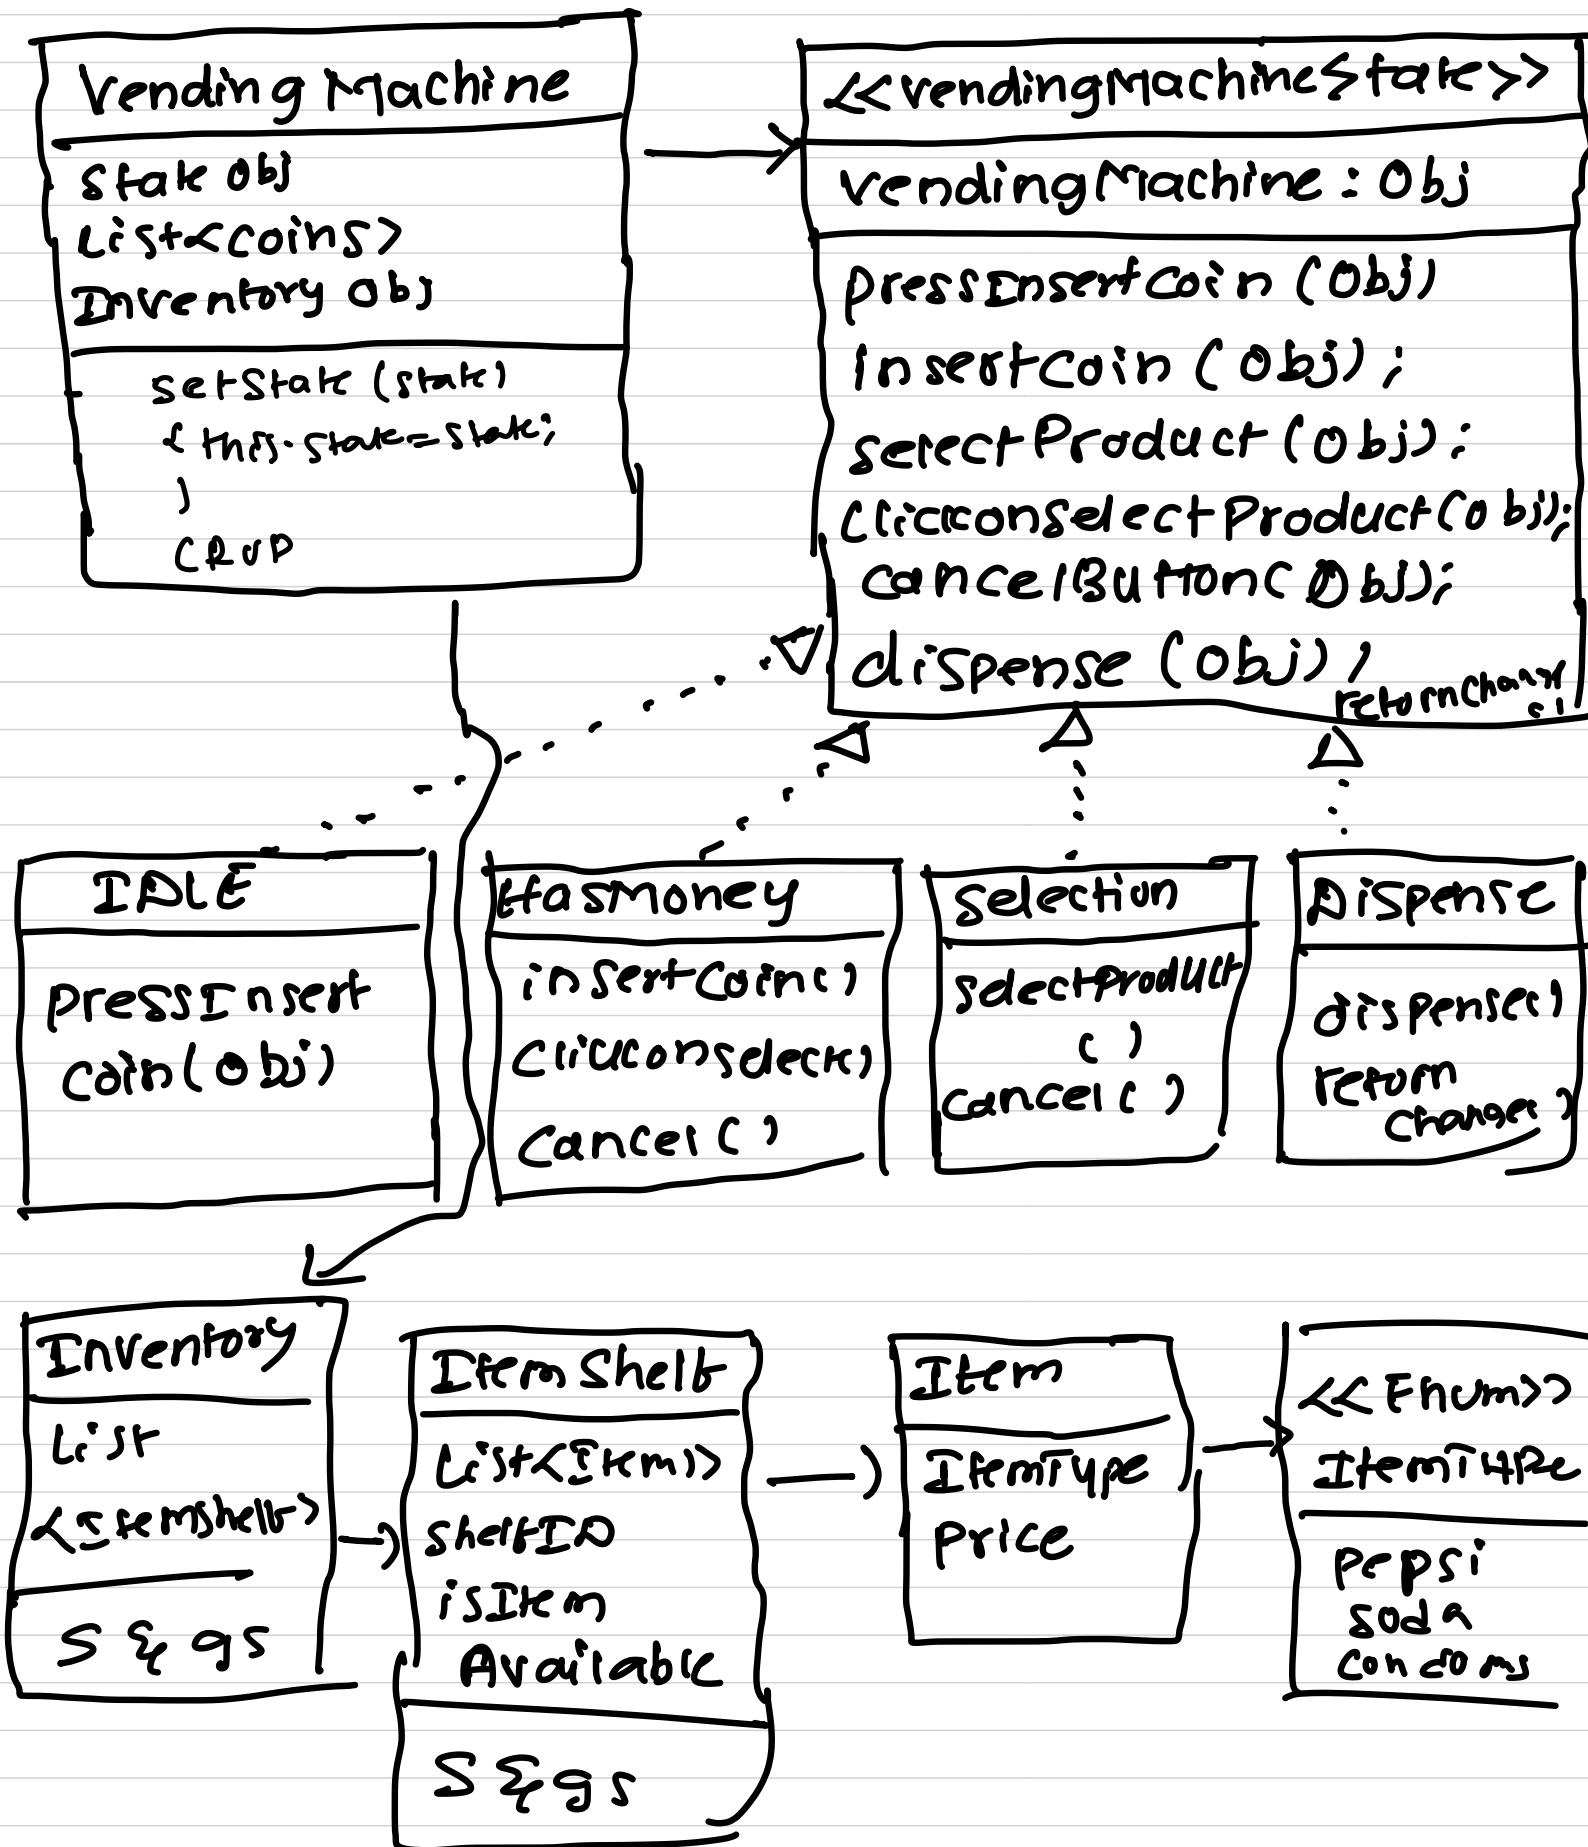 Vending Machine
State Obj
List<coins>
Inventory Obj
setState (state)
{ this.state=state;
}
CRUD
<<vendingMachineState>>
vendingMachine : Obj
pressInsertCoin (Obj)
insertCoin (Obj);
selectProduct (Obj);
clickonselectProduct(Obj);
cancelButton(Obj);
dispense (Obj);
returnChange
();
IDLE
pressInsert
coin(Obj)
HasMoney
insertCoin()
clickonselect()
cancel()
Selection
selectProduct
()
cancel()
Dispense
dispense()
return
change()
Inventory
List
<Itemshelf>
S & gs
Item Shelf
List<Item>
shelfID
isItem
Available
S & gs
Item
ItemType
Price
<<Enum>>
ItemType
pepsi
soda
condoms